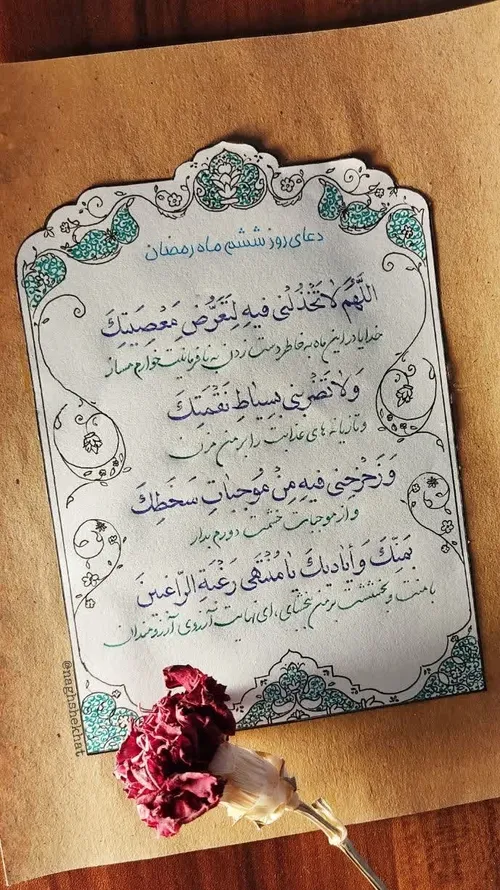 دعای روز ششم ماه رمضان
اللَّهُمَّ لاتَخْذُلْنی فیهِ لِتَعَرُّضِ مَعْصِیَتِکَ
خدایا در این ماه به خاطر دست زدن به نافرمانیت خوارم مساز
وَلاتَضْرِبْنی بِسِیاطِ نَقْمَتِکَ
و تازیانه های عذابت را بر من مزن
وَ زَحْزِحْنی فیهِ مِنْ مُوجِباتِ سَخَطِکَ
و از موجبات خشمت دورم بدار
بِمَنِّکَ وَ اَیادیکَ یا مُنْتَهی رَغْبَةِ الرّاغِبینَ
با منت و بخششت بر من ببخشای، ای نهایت آرزوی آرزومندان
@naghshekhat